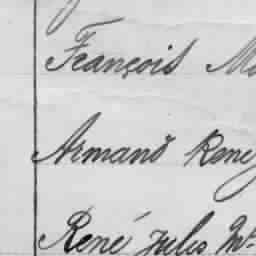 François
Armand René
René Jules M